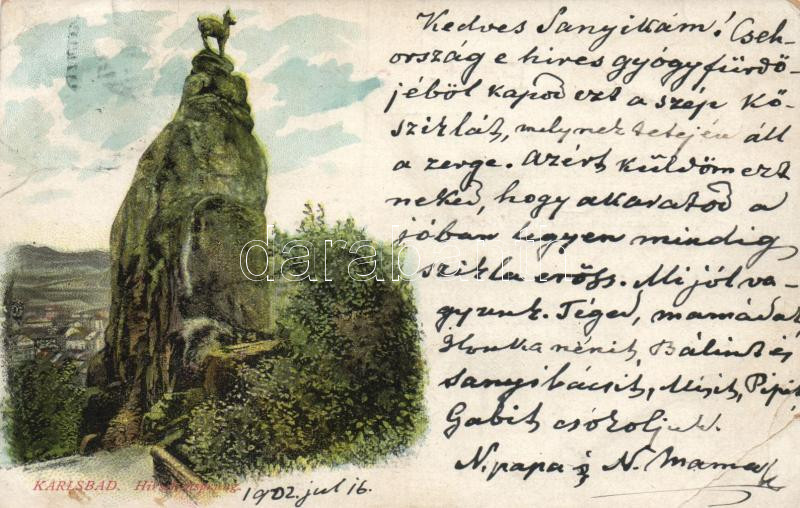 Kedves Sanyikám! Cseh-
ország e hires gyógyfürdő-
jéből kapod ezt a szép kő-
sziklát, melynek tetején áll
a zerge. Azért küldöm ezt
neked, hogy akaratod a
jóban legyen mindig
szikla erőss. Mi jól va-
gyunk. Téged, mamádat
Ilonka nénit, Bálint és
Sanyibácsit, Misit, Pipit
Gabit csókoljuk.
N. papa és N. Mama
KARLSBAD. Hirschensprung.
1902. jul 16.
darabanth.com